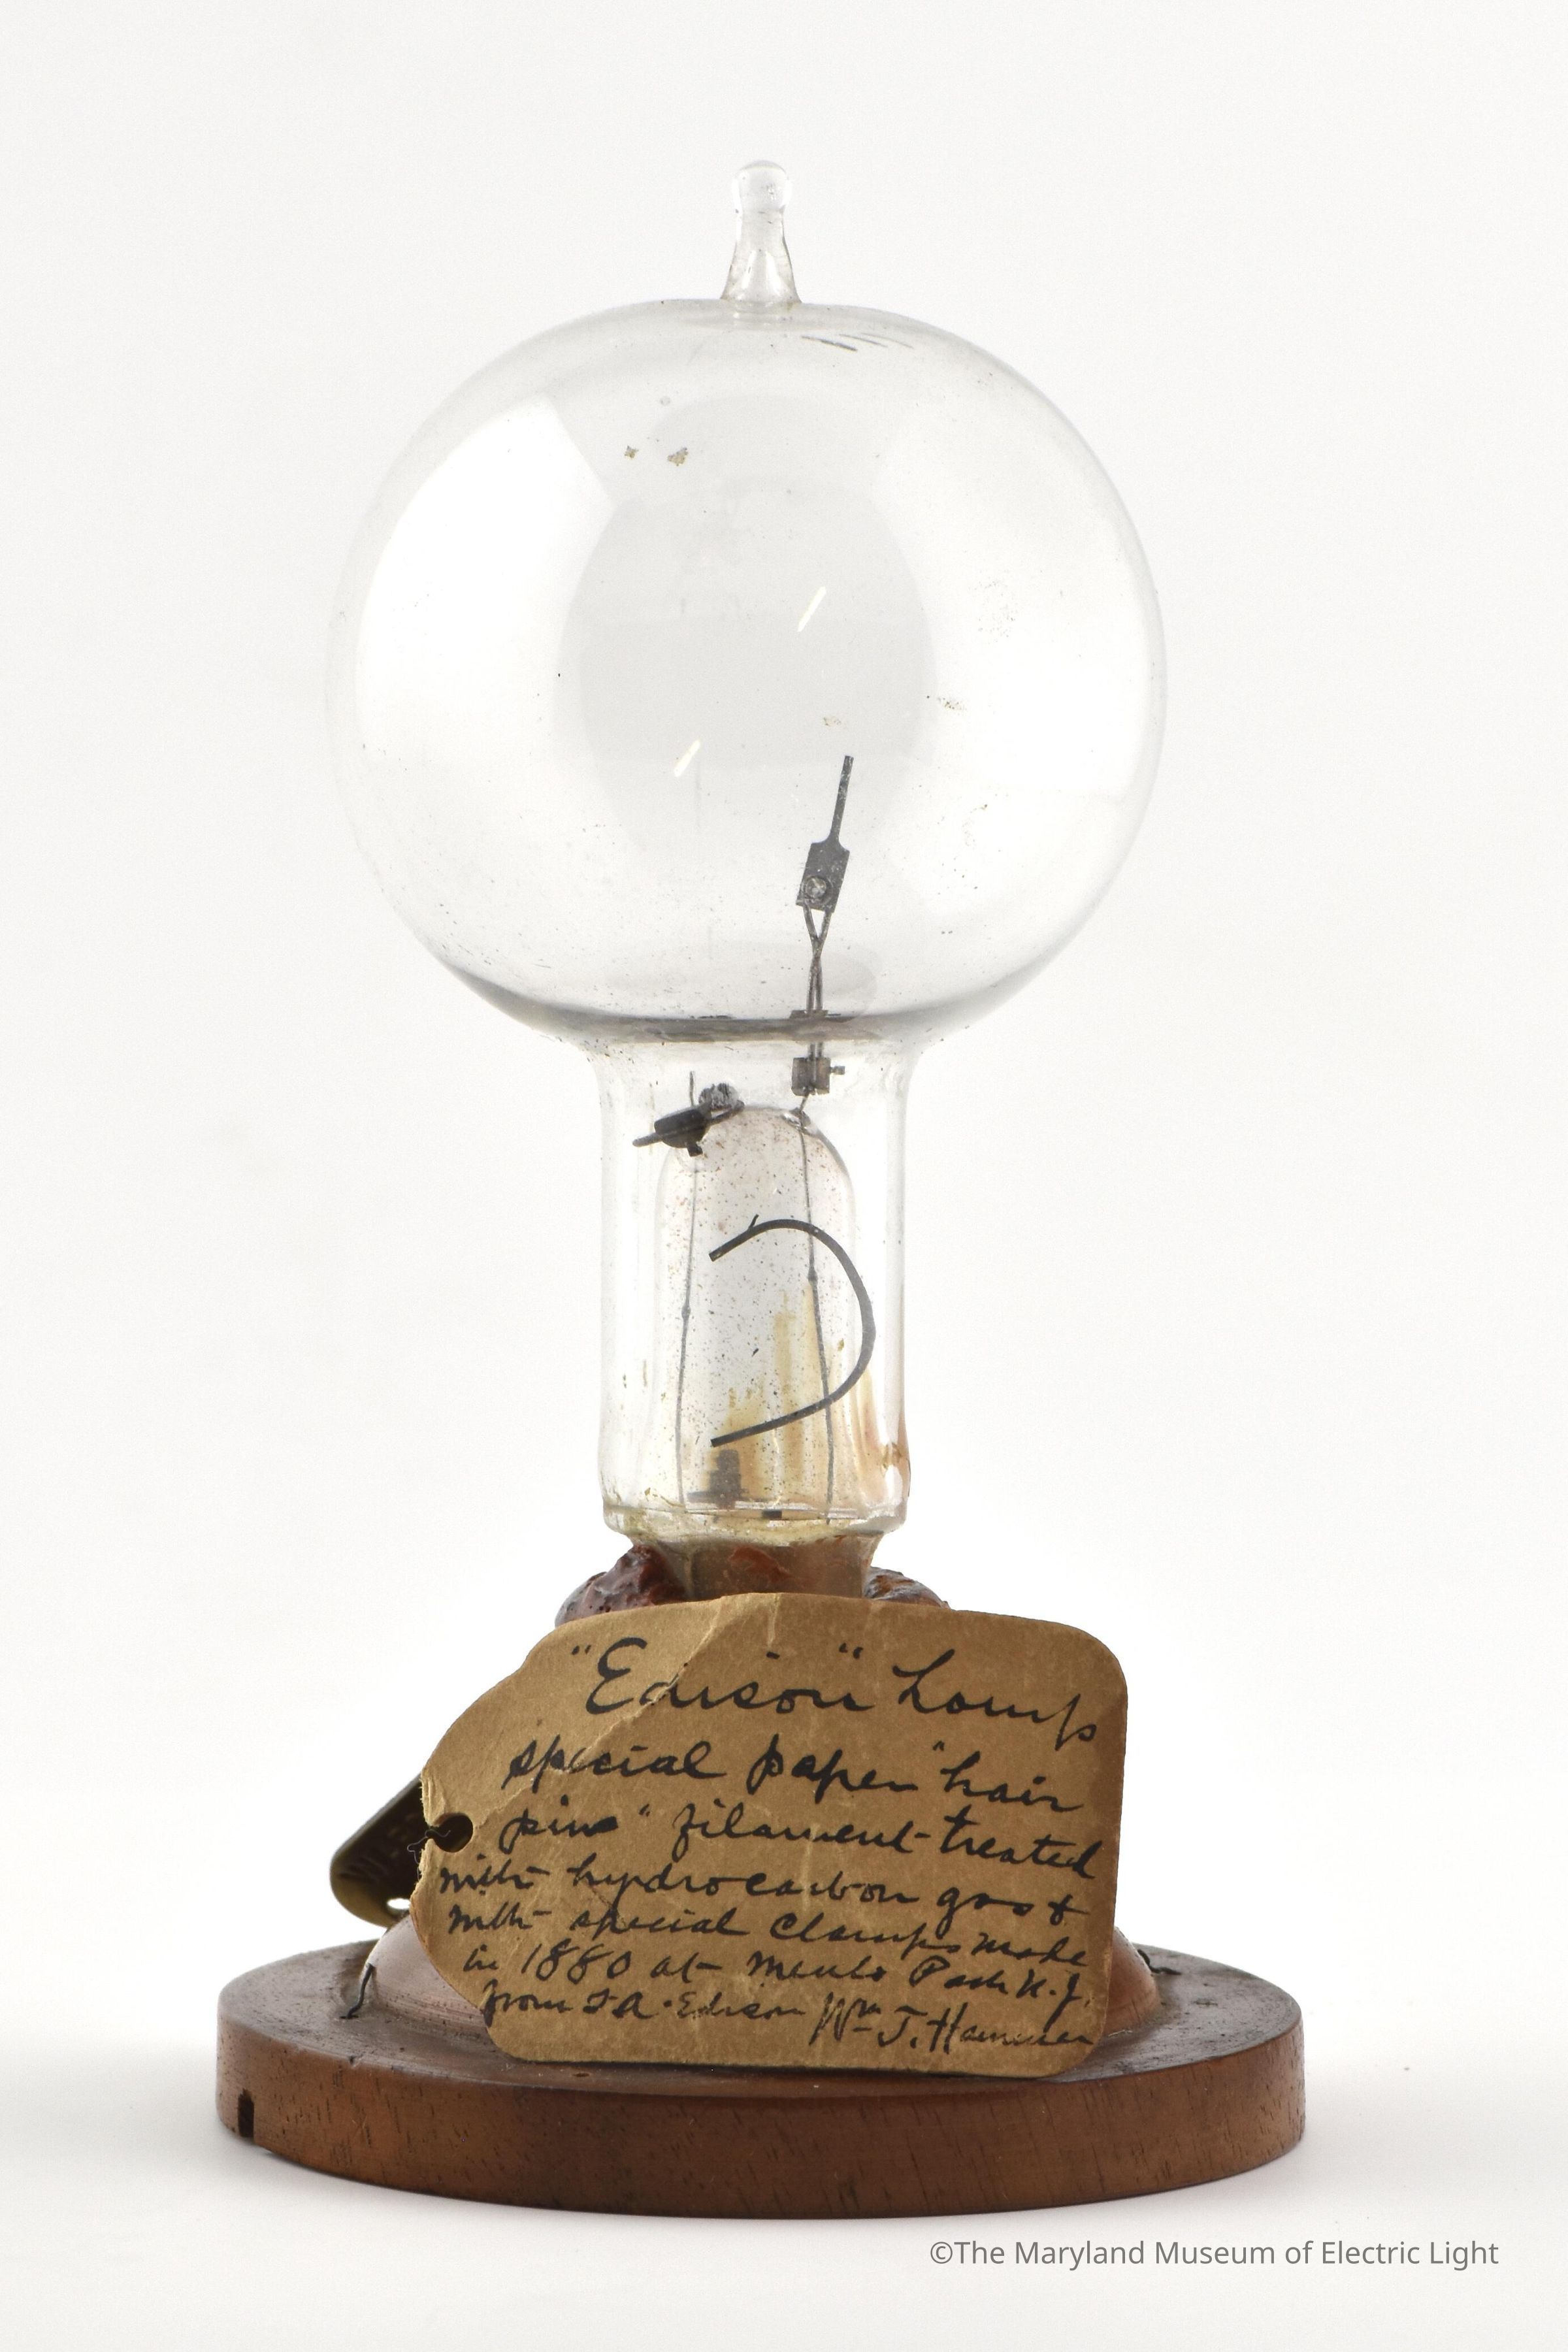 "Edison" Lamp
special paper "hair
pin" filament treated
with hydrocarbon gas &
with special clamps made
in 1880 at Menlo Park N.J.
from T A. Edison Wm J. Hammer
©The Maryland Museum of Electric Light